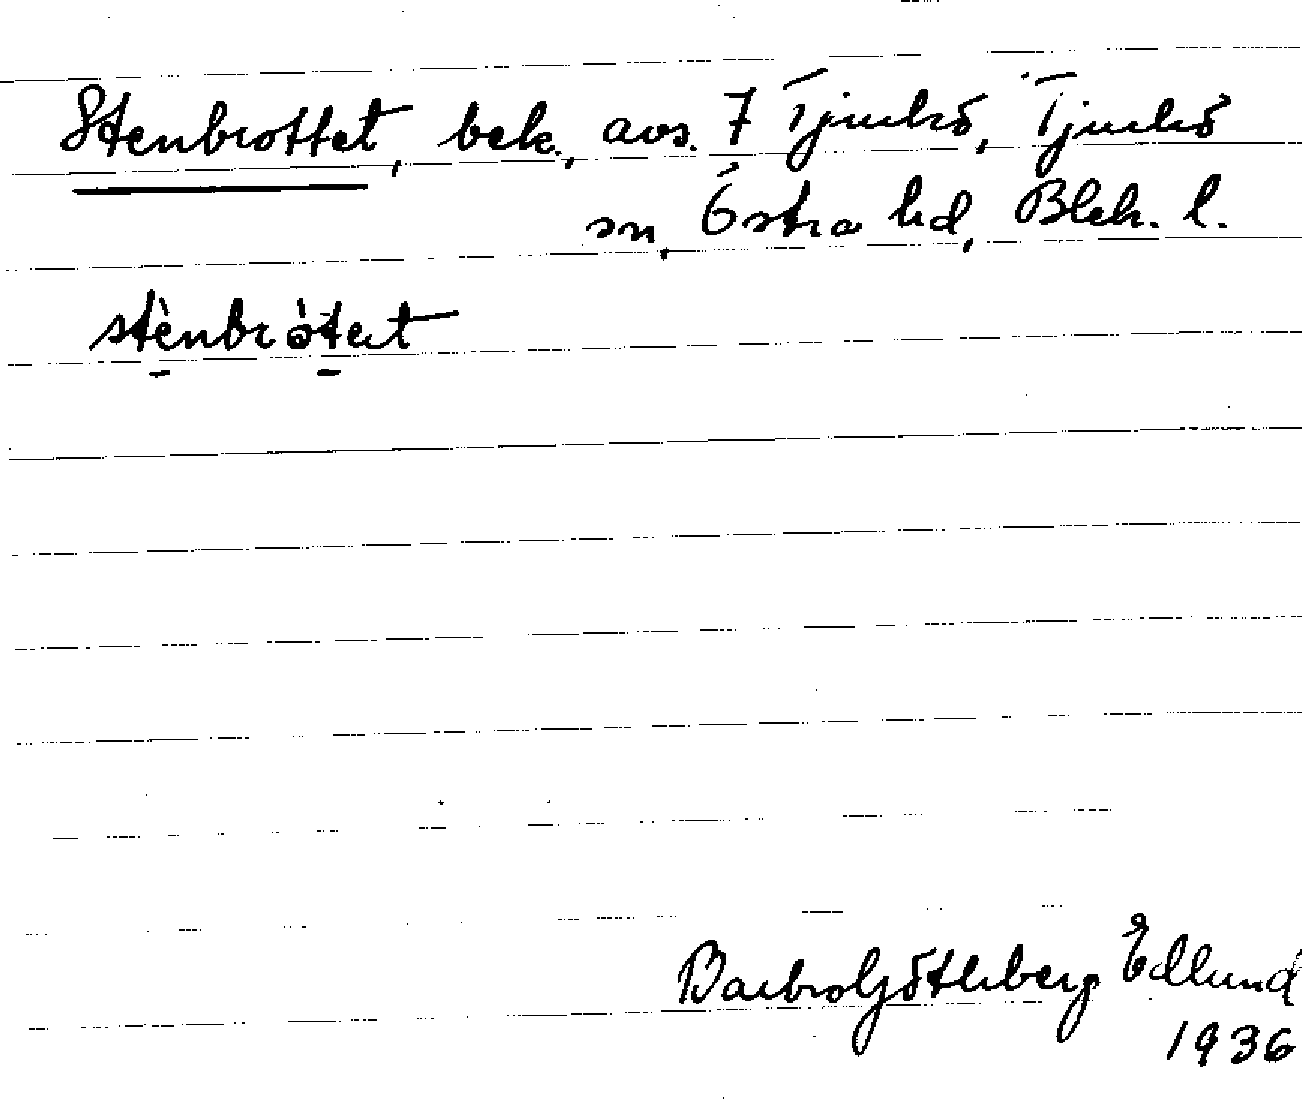 Stenbrottet, bek., avs. 7 Tjurkö, Tjurkö
sn, Östra hd, Blek. l.
stènbròtet
Barbro Göthberg Edlund
1936